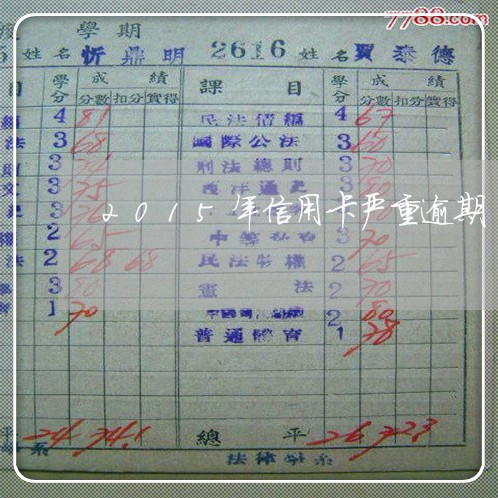 7788.com
學期
姓名 忻鼎明 2616 姓名 賈泰德
目 學分 成績 課目 學分 成績
分數 扣分 實得 分數 扣分 實得
4 81 民法債編 4 67
法 3 68 國際公法 3 60
3 刑法總則 3 70
文 3 75 西洋通史 3
3 76 3
權 2 65 3 70
法 2 68 68 民法物權 2 65
3 憲法 2 70
1 70 2 80
普通體育 1 78
2015年信用卡严重逾期
平 24 74.1 總平 26 72.3
系 法律學系